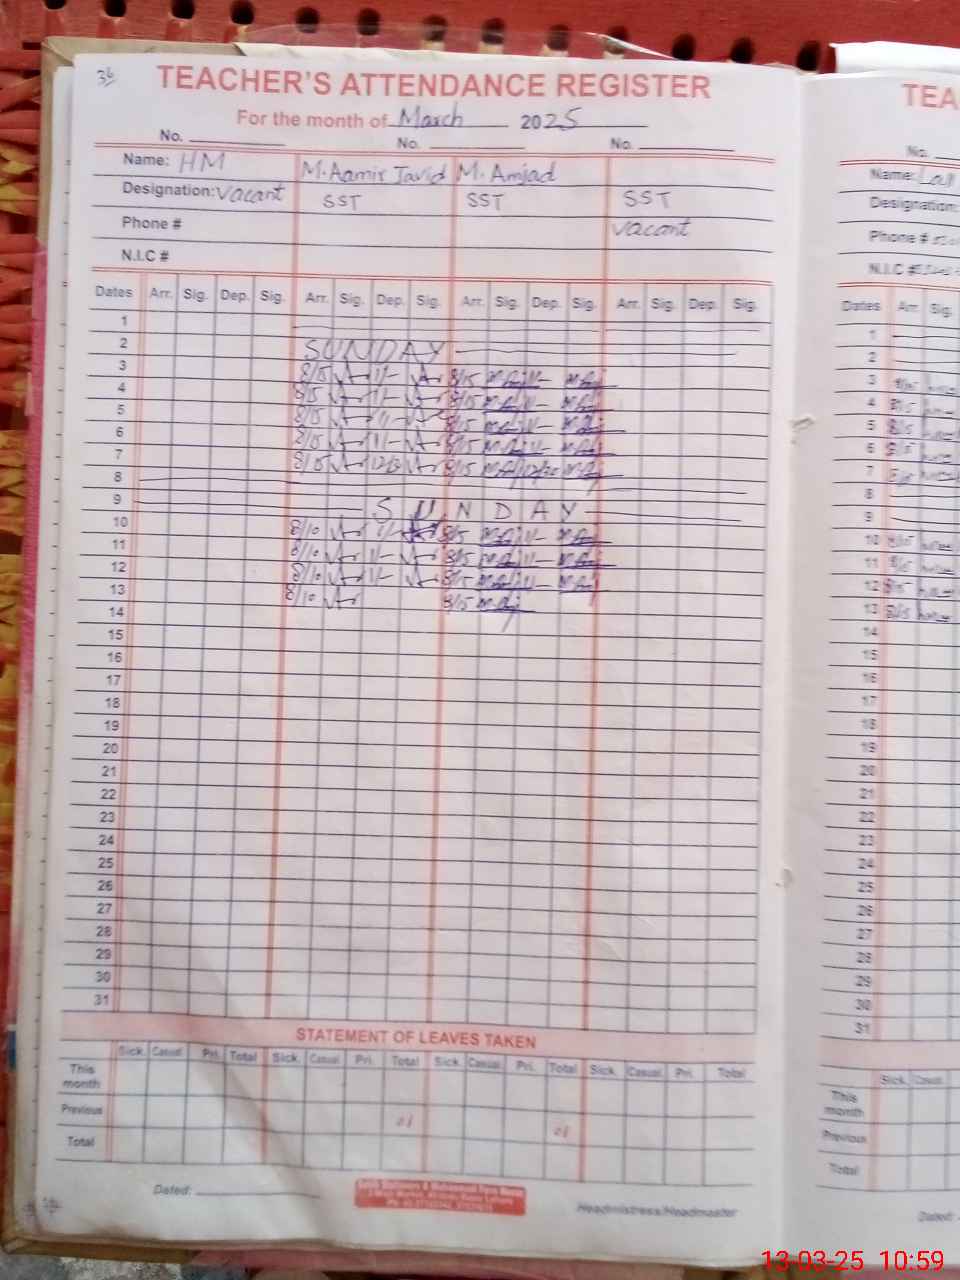 36
TEACHER'S ATTENDANCE REGISTER
For the month of March 2025
No. No. No.
Name: HM M. Aamir Javid M. Amjad
Designation: Vacant SST SST SST
Phone # Vacant
N.I.C #
Dates Arr. Sig. Dep. Sig. Arr. Sig. Dep. Sig. Arr. Sig. Dep. Sig. Arr. Sig. Dep. Sig.
1
2 SUNDAY
3 8/15 1/- 8/15 1/-
4 8/15 1/- 8/15 1/-
5 8/15 1/- 8/15 1/-
6 8/15 1/- 8/15 1/-
7 8/15 8/15
8
9 SUNDAY
10 8/10 1/- 8/15 1/-
11 8/10 1/- 8/15 1/-
12 8/10 1/- 8/15 1/-
13 8/10 8/15
14
15
16
17
18
19
20
21
22
23
24
25
26
27
28
29
30
31
STATEMENT OF LEAVES TAKEN
Sick. Casual. Pri. Total Sick. Casual. Pri. Total Sick. Casual. Pri. Total Sick. Casual. Pri. Total
This month
Previous 01 01
Total
Dated:
Headmistress/Headmaster
TEA
No.
Name:
Designation:
Phone #
N.I.C #
Dates Arr. Sig.
1
2
3
4
5
6
7
8
9
10
11
12
13
14
15
16
17
18
19
20
21
22
23
24
25
26
27
28
29
30
31
Sick. Casual.
This month
Previous
Total
Dated:
13-03-25 10:59